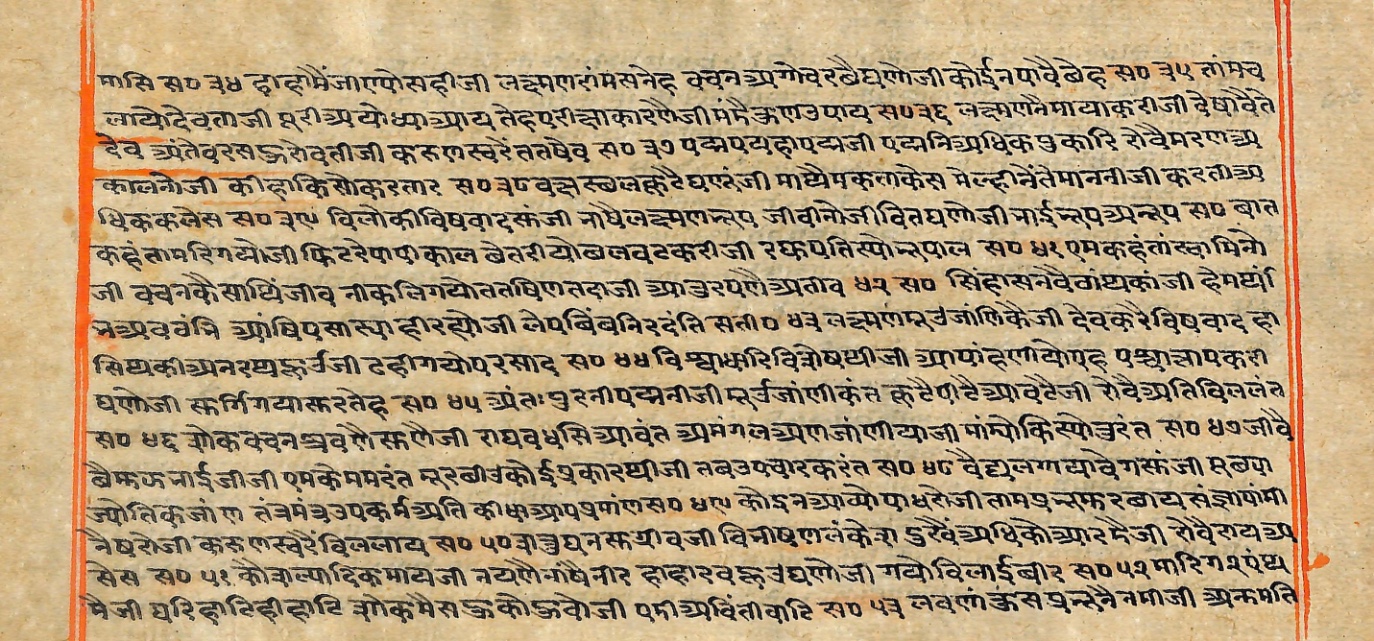 मासि स० ३४ हाहामैंजाण्योसहीजी लक्ष्मणरांमसनेह वचनअगोचरबैघणोजी कोईनपावैबेह स० ३५ तांमच
लायोदेवताजी पुरीअयोध्याआय तेहपरीक्षाकारणैजी मंमैऊणउपाय स०३६ लक्ष्मणनैमायाकरीजी देषावैते
देव अंतेवरसहुरोवतीजी करुणस्वरेंततषेव स० ३७ पद्मपद्महापद्मजी पद्मनिअधिकपुकारि रोवैमरणअ
कालनोजी कीहाकिसोकरतार स०३८ वक्षस्थलकूटैघणुंजी माथैमूकलाकेस मेल्हीनेंतेमाननीजी करतीअ
धिककलेस स० ३९ विलोकीविषवादसुंजी नाषैलक्ष्मणनृप जीवीनोजीवितघणोजी नाईनृपअनृप स० बात
कहंतामरिगयोजी फिटरेपापीकाल बेतरीयोबलवटकरीजी रघुपतिस्योनृपाल स० ४१ एमकहंतांस्वामिनो
जी वचनकैसाथिंजीव नीकलिगयोततषिणतदाजी आतुरपणैअतीव ४२ स० सिंहासनवैवांथकांजी हेमथां
नअववंनि आंषिपसास्याहीरह्योजी लेपबिंबनिरदंति सती० ४३ लक्ष्मणमूउजांणिकैजी देवकरैविषवाद हा
सिथकीअनरथहूउजी टहीगयोपरसाद स० ४४ विश्वाधारिविशेषथीजी आपांहणीयोएह पश्चात्तापकरी
घणोजी स्वर्गिगयासुरतेह स० ४५ अंतःपुरनीपद्मनीजी मूउजांणीकंत कूटैपीटैआवटैजी रोवैअतिविललंत
स० ४६ शोकवचनश्रवणैसुणैजी राघवधसिआवंत अमंगलअणजांणीयाजी मांम्योकिस्योतुरंत स० ४७ जीवै
बैमुझनाईजीजी एमकेममरंत मूरबीउकोईप्रकारथीजी तबउपचारकरंत स० ४८ वैद्यलगयावेगसुंजी मूबपा
ज्योतिकजांण तंत्रमंत्रउपकर्मअति कीधाआपप्रमांणस० ४९ कोइनआव्योपाधरोजी तामप्रनुमुरबाय संज्ञापांमी
नैषरोजी करुणस्वरेंविललाय स० ५० शत्रुघनसुग्रीवजी विनीषणलंकेश डुखेंअधिकोआरमैजी रोवैरायअ
सेस स० ५१ कौशल्यादिकमायजी नयणैनांषैनीर हाहारवहूउघणोजी गयोविलाईबीर स० ५२ मारिगश्पंथ
मैजी घरिहाटिहीहाटि शोकमैसहुकोहूवोजी एमाअविंतीवाटि स० ५३ लवणांकुसप्रनुनैनमाजी अनुमति